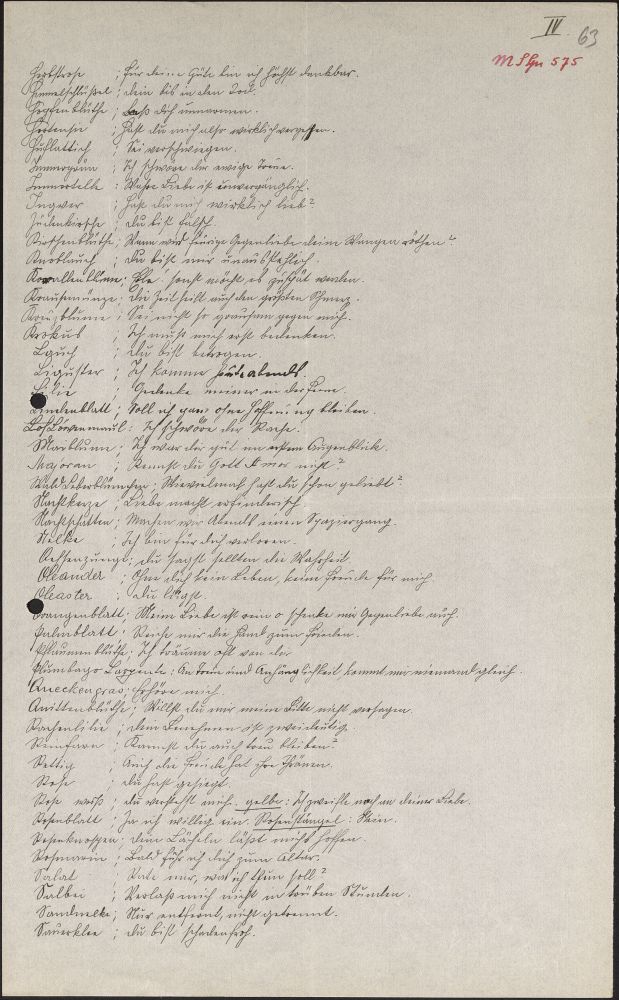 IV. 63
M S Gn 575
Herbstrose ; Für deine Güte bin ich höchst dankbar.
Himmelschlüßel ; dein bis in den Tod.
Hopfenblüthe ; Laß dich umarmen.
Hortensie ; Hast du mich also wirklich vergessen.
Huflattich ; Sei verschwiegen.
Immergrün ; Ich schwöre dir ewige Treue.
Immortelle : Wahre Liebe ist unvergänglich.
Ingwer ; Hast du mich wirklich lieb?
Judenkirsche ; du bist falsch.
Kirschenblüthe ; Wann wird feurige Gegenliebe deine Wangen röthen?
Knoblauch ; du bist mir unausstehlich.
Korallenblume ; Eile! sonst möcht es zu spät werden.
Krausemünze ; die Zeit heilt auch den größten Schmerz.
Kreuzblume ; Sei nicht so grausam gegen mich.
Krokus ; Ich muß mich erst bedenken.
Lauch ; du bist betrogen.
Liguster ; Ich komme heute abends.
Lilie ; Gedenke meiner in der Ferne.
Lindenblatt ; Soll ich ganz ohne Hoffnung bleiben.
Löwenmaul : Ich schwöre dir Rache.
Maiblume ; Ich war dir gut im ersten Augenblick.
Majoran ; Kennst du Gott Amor nicht?
Wald Leberblümchen ; Wievielmal hast du schon geliebt?
Nachtkerze ; Liebe macht erfinderisch
Nachtschatten ; Machen wir Abends einen Spaziergang.
Nelke ; Ich bin für dich verloren.
Ochsenzunge ; du sagst selten die Wahrheit.
Oleander ; Ohne dich kein Leben, keine Freude für mich.
Oleaster ; du lügst.
Orangenblatt ; Meine Liebe ist rein o schenke mir Gegenliebe auch.
Palmblatt ; Reiche mir die Hand zum Frieden.
Pflaumenblüthe ; Ich träume oft von dir
Plumbago Larpente ; An Treue und Anhänglichkeit kommt mir niemand gleich.
Queckengras ; Erhöre mich.
Quittenblüthe ; Willst du mir meine Bitt nicht versagen.
Rachenlilie ; dein Benehmen ist zweideutig.
Reinfarn ; Kannst du auch treu bleiben?
Rettig ; Auch die Freude hat ihre Thränen.
Rose ; du hast gesiegt.
Rose weiß ; du verstehst mich. gelbe : Ich zweifle noch an deiner Liebe.
Rosenblatt ; Ja ich willige ein. Rosenstängel : Nein.
Rosenknospen ; dein Lächeln läßt mich hoffen.
Rosmarin ; Bald führ ich dich zum Altar.
Salat ; Rate mir, was ich thun soll?
Salbei ; Verlaß mich nicht in trüben Stunden.
Sandnelke ; Nur entfernt, nicht getrennt.
Sauerklee ; du bist schadenfroh.